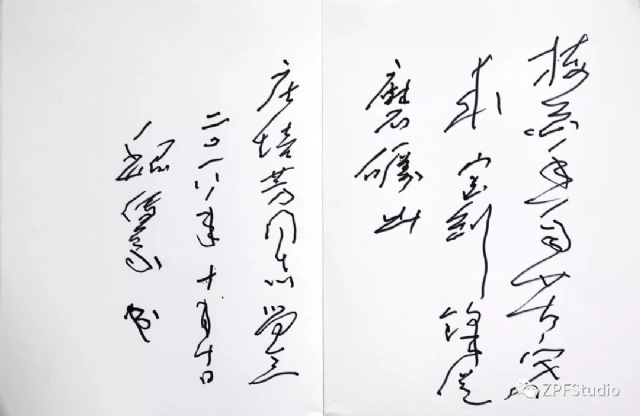 梅花香自苦寒
来 宝剑锋从
磨砺出
庄培芳同志留念
二〇一八年十月十日
魏传 书
ZPFStudio